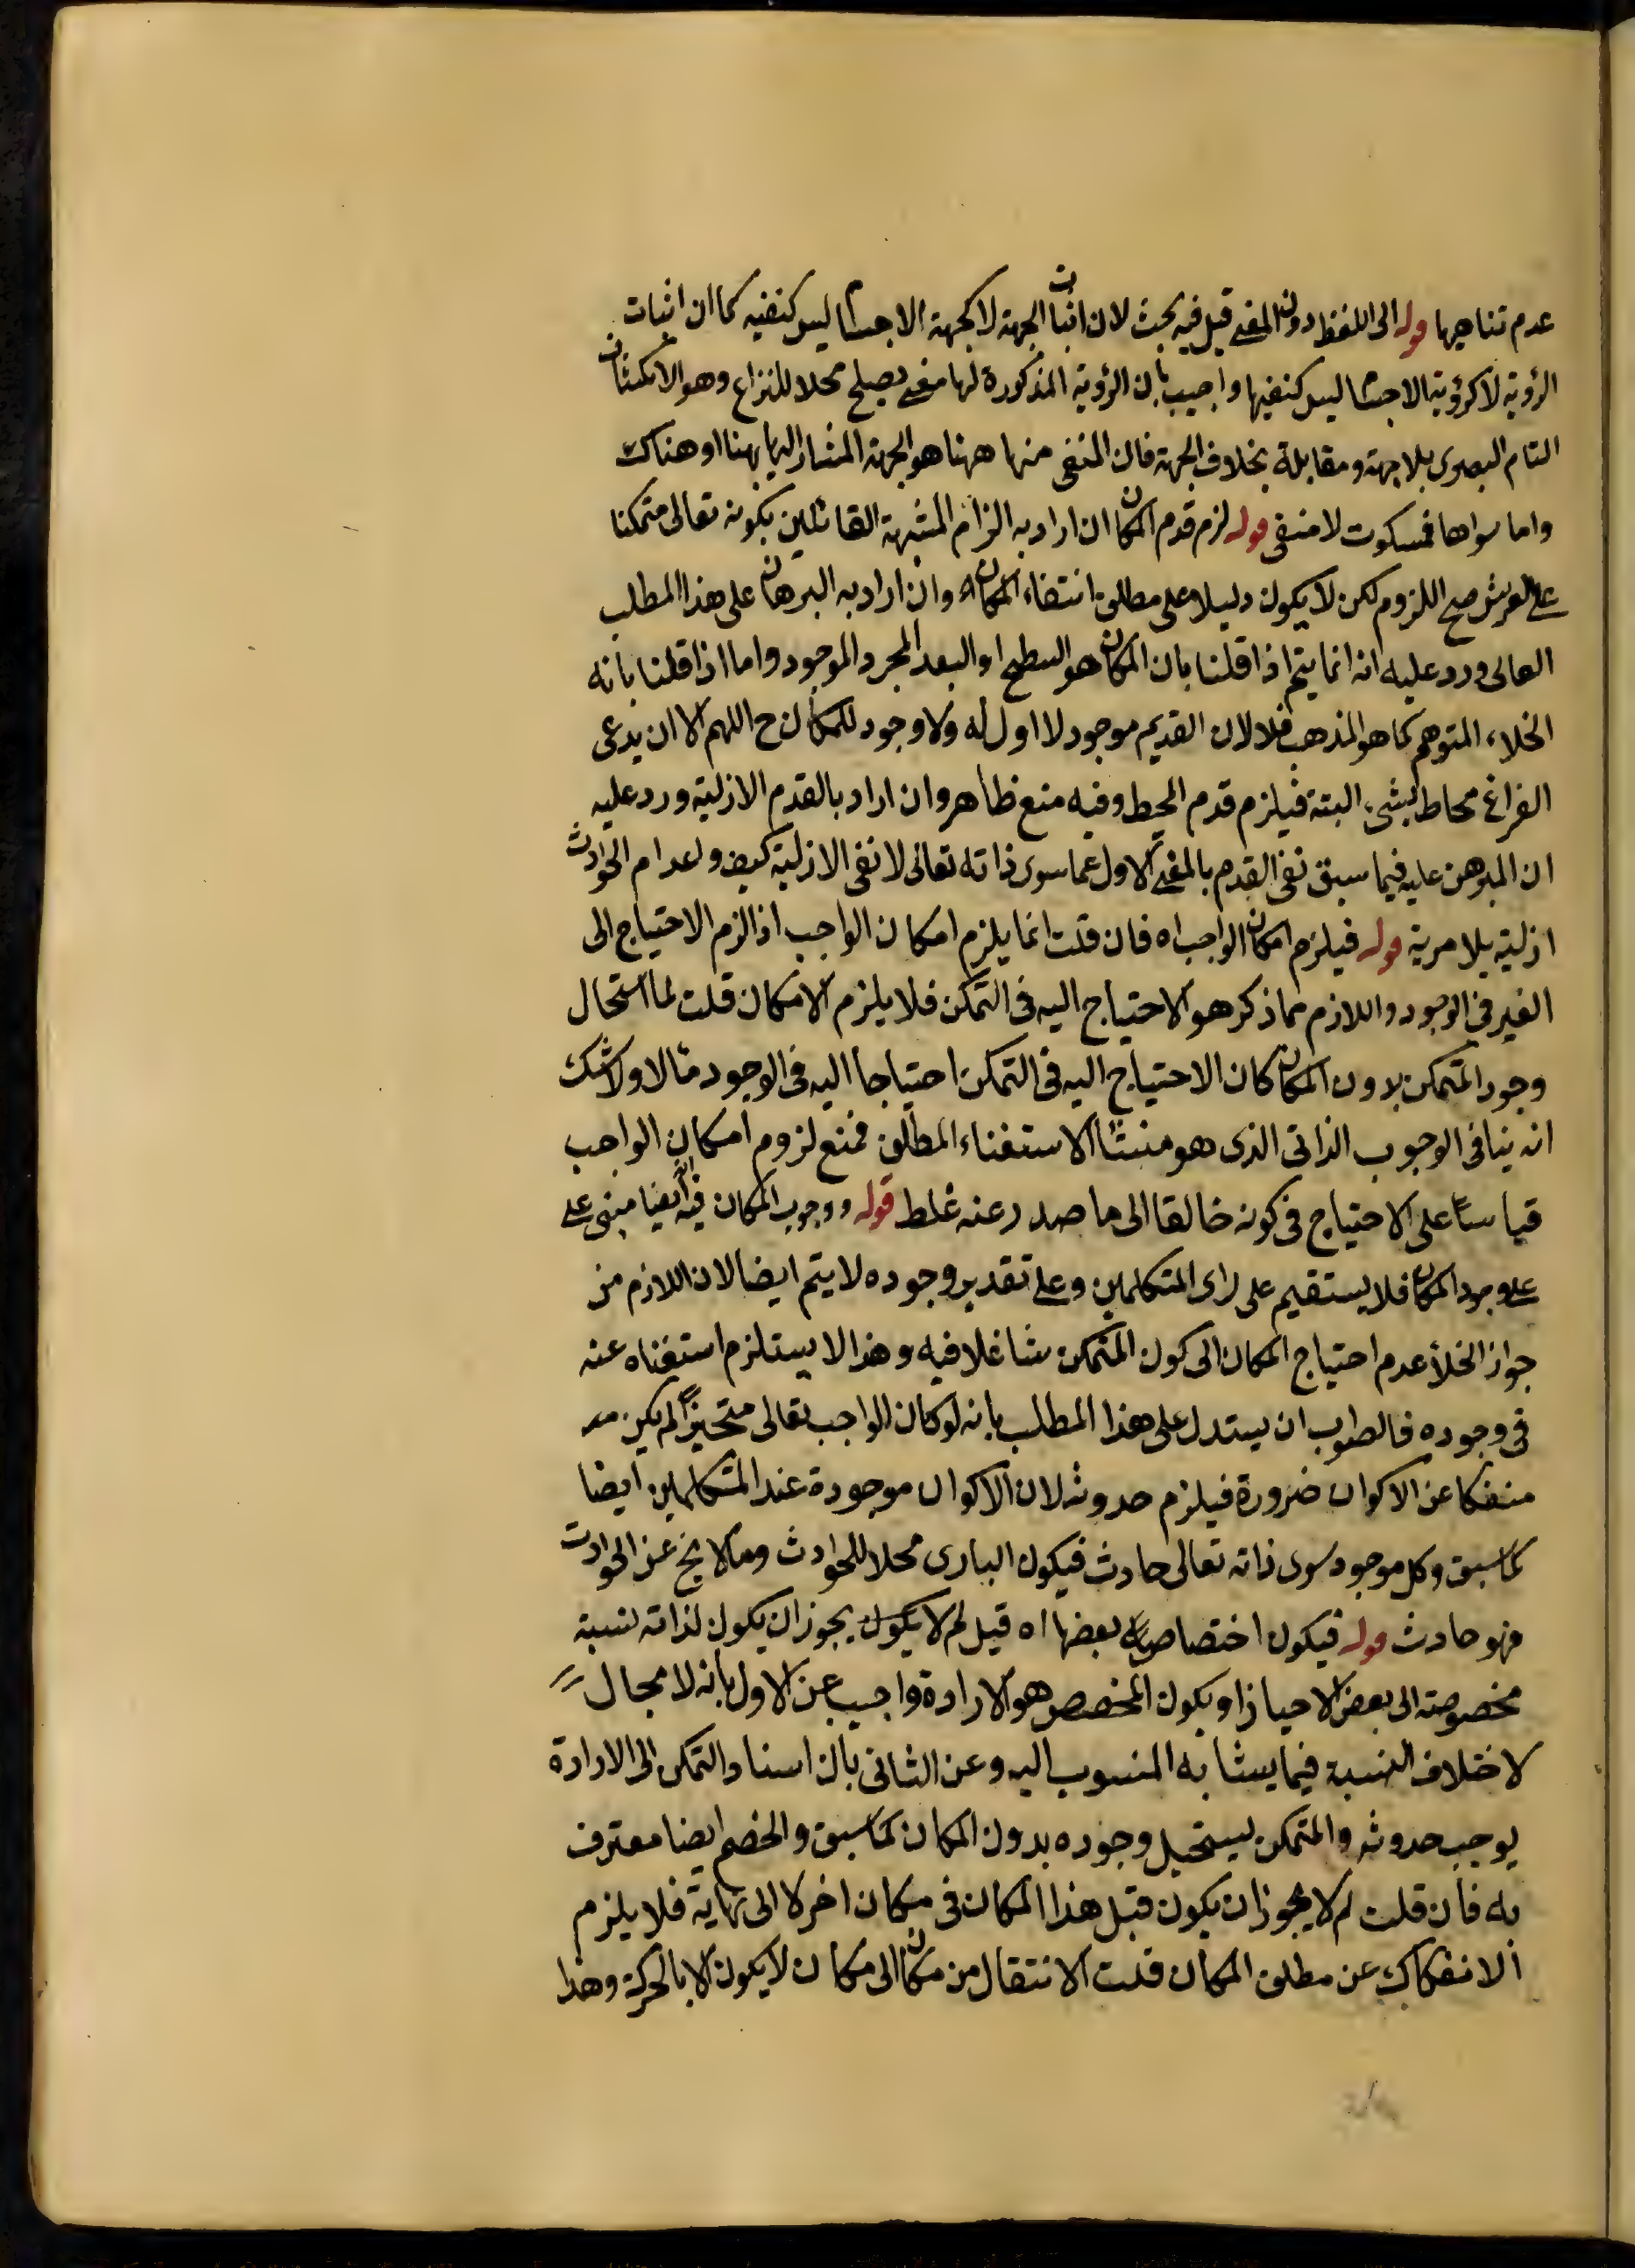 عدم تناهيها قوله الى اللفظ دون المعنى قيل فيه بحث لان اثبات الجهة لا كجهة الاجسام ليس كنفيه كما ان اثبات
الرؤية لا كرؤية الاجسام ليس كنفيها واجيب بان الرؤية المذكورة لها معنى يصلح محلا للنزاع وهو الانكشاف
التام البصرى بلا جهة ومقابلة بخلاف الجهة فان المنفى منها ههنا هو الجهة المشار اليها بهنا او هناك
واما سواها فمسكوت لا منفى قوله لزم قدم المكان ان اراد به الزام المشبهة القائلين بكونه تعالى متمكنا
على العرش صح اللزوم لكن لا يكون دليلا على مطلق انتفاء المكان وان اراد به البرهان على هذا المطلب
العالى ورد عليه انه انما يتم اذا قلنا بان المكان هو السطح او البعد المجرد الموجود واما اذا قلنا بانه
الخلاء المتوهم كما هو المذهب فلا لان القديم موجود لا اول له ولا وجود للمكان ح اللهم الا ان يدعى
الفراغ محاط بشئ البتة فيلزم قدم المحيط وفيه منع ظاهر وان اراد بالقدم الازلية ورد عليه
ان المبرهن عليه فيما سبق نفى القدم بالمعنى الاول عما سوى ذاته تعالى لا نفى الازلية كيف واعدام الحوادث
ازلية بلا مرية قوله فيلزم امكان الواجب اه فان قلت انما يلزم امكان الواجب اذا لزم الاحتياج الى
الغير فى الوجود واللازم مما ذكر هو الاحتياج اليه فى التمكن فلا يلزم الامكان قلت لما استحال
وجود المتمكن بدون المكان كان الاحتياج اليه فى التمكن احتياجا اليه فى الوجود مآلا ولا شك
انه ينافى الوجوب الذاتى الذى هو منشأ الاستغناء المطلق فمنع لزوم امكان الواجب
قياسا على الاحتياج فى كونه خالقا الى ما صدر عنه غلط قوله ووجوب المكان فيه انه ايضا مبنى على
على وجود المكان فلا يستقيم على راى المتكلمين وعلى تقدير وجوده لا يتم ايضا لان اللازم من
جواز الخلأ عدم احتياج المكان الى كون المتمكن شاغلا فيه وهذا لا يستلزم استغناه عنه
فى وجوده فالصواب ان يستدل على هذا المطلب بانه لو كان الواجب تعالى متحيزا لم يكن
منفكا عن الاكوان ضرورة فيلزم حدوثه لان الاكوان موجودة عند المتكلمين ايضا
كما سبق وكل موجود سوى ذاته تعالى حادث فيكون البارى محلا للحوادث وما لا يخ عن الحوادث
فهو حادث قوله فيكون اختصاصه بعضها اه قيل لم لا يكون يجوز ان يكون لذاته نسبة
مخصوصة الى بعض الاحياز او يكون المخصص هو الارادة واجيب عن الاول بانه لا مجال
لاختلاف النسبة فيما يشابه المنسوب اليه وعن الثانى بان اسناد التمكن الى الارادة
يوجب حدوثه والمتمكن يستحيل وجوده بدون المكان كما سبق والخصم ايضا معترف
به فان قلت لم لا يجوز ان يكون قبل هذا المكان فى مكان اخر لا الى نهاية فلا يلزم
الانفكاك عن مطلق المكان قلت الانتقال من مكان الى مكان لا يكون الا بالحركة وهذا